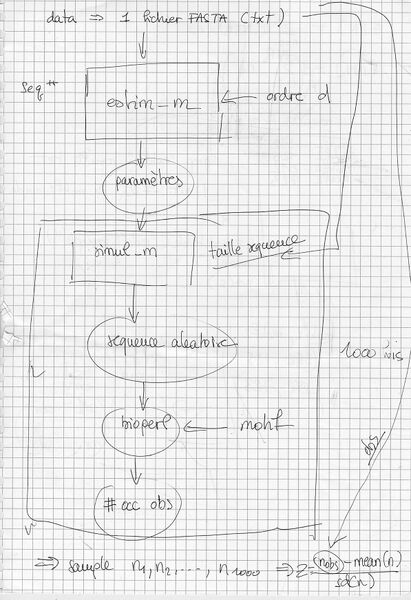 data ⇒ 1 fichier FASTA (txt)
seq**
estim_m ← ordre d
paramètres
simul_m
taille sequence
sequence aleatoire
1000 fois
bioperl ← motif
# occ obs
⇒ sample n1, n2, ..., n1000 ⇒ Z = (nobs) - mean(n)
sd(n)